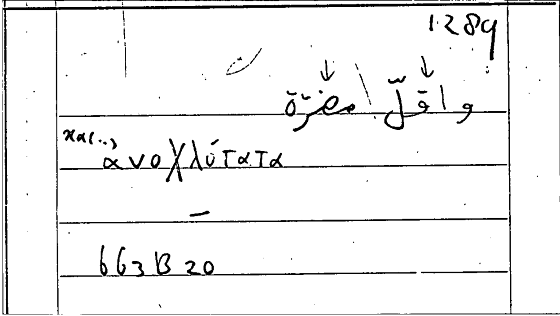 1289
واقلّ مضرّة
ανοχλότατα
663B 20